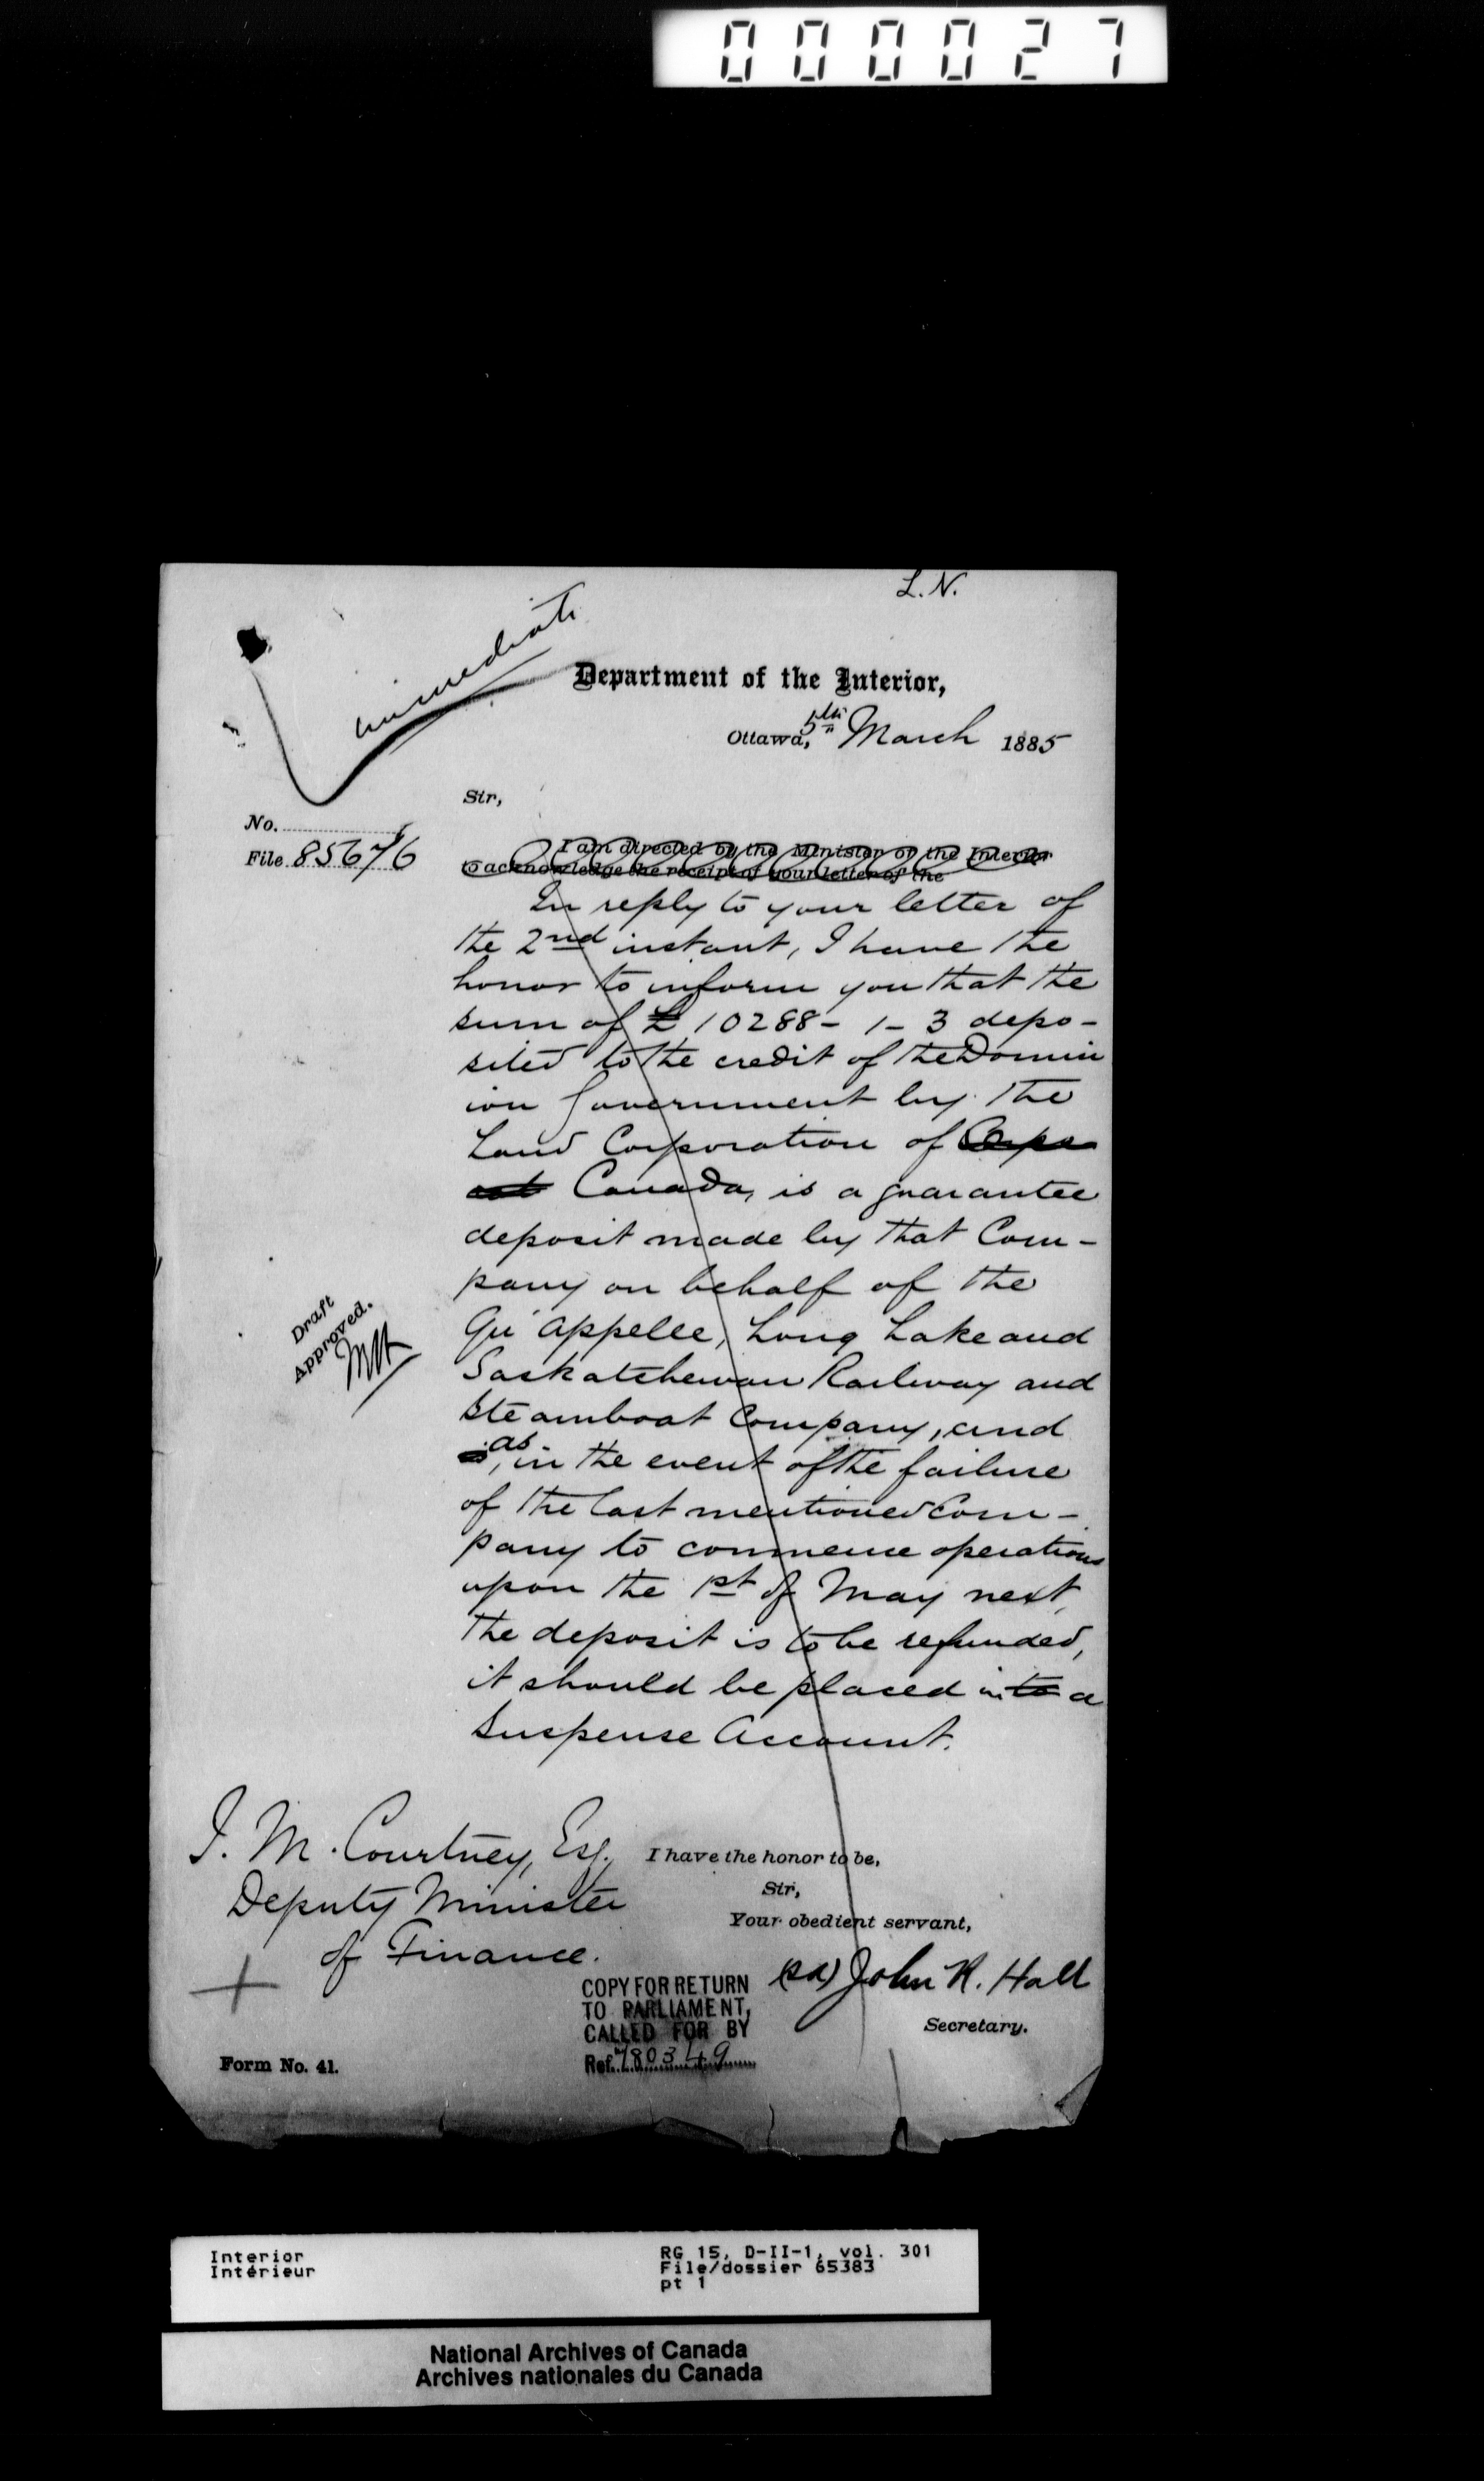 000027
L. N.
immediate
Department of the Interior,
Ottawa, 5th March 1885
Sir,
No.
File 85676
I am directed by the Minister of the Interior
to acknowledge the receipt of your letter of the
In reply to your letter of
the 2nd instant, I have the
honor to inform you that the
sum of £10288-1-3 depo-
sited to the credit of the Domin
ion Government by the
Land Corporation of
Canada, is a guarantee
deposit made by that Com-
pany on behalf of the
Qu'appelle, Long Lake and
Saskatchewan Railway and
Steamboat Company, and
as, in the event of the failure
of the last mentioned Com-
pany to commence operations
upon the 1st of May next,
the deposit is to be refunded,
it should be placed into a
Suspense Account.
Draft
Approved.
J. M. Courtney, Esq.,
Deputy Minister
of Finance.
I have the honor to be,
Sir,
Your obedient servant,
(sd) John R. Hall
Secretary.
COPY FOR RETURN
TO PARLIAMENT,
CALLED FOR BY
Ref. 780349
Form No. 41.
Interior
Intérieur
RG 15, D-II-1, vol. 301
File/dossier 65383
pt 1
National Archives of Canada
Archives nationales du Canada